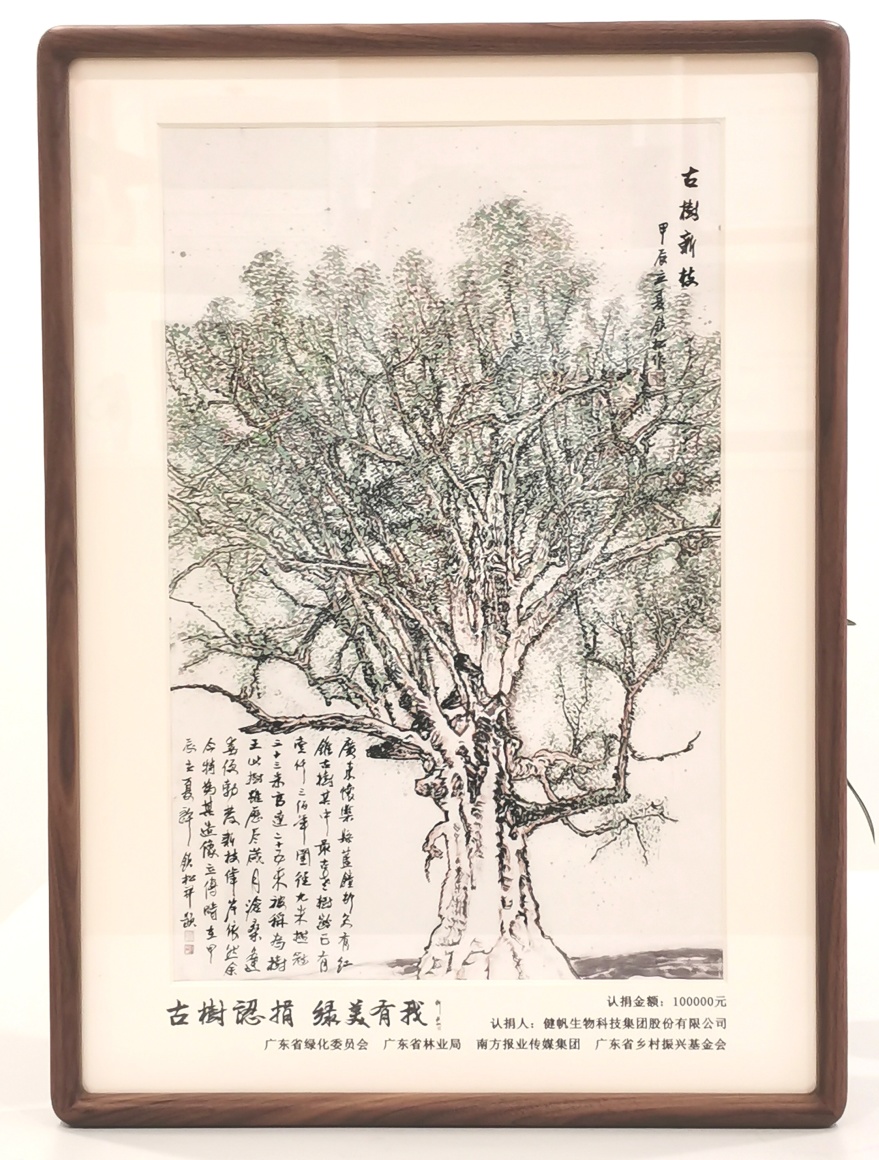 古樹新枝
甲辰立夏欽松作
廣東懷集縣藍鐘折久有红
錐古樹其中最老者樹齡已有
壹仟三佰年圍徑九米樹冠
二十三米高達二十五米被稱為樹
王此樹雖歷尽歲月滄桑
勃發新枝偉岸依然余
今特為其造像立傳時在甲
辰立夏許欽松并題
古樹認捐 绿美有我
认捐金额：100000元
认捐人：健帆生物科技集团股份有限公司
广东省绿化委员会 广东省林业局 南方报业传媒集团 广东省乡村振兴基金会